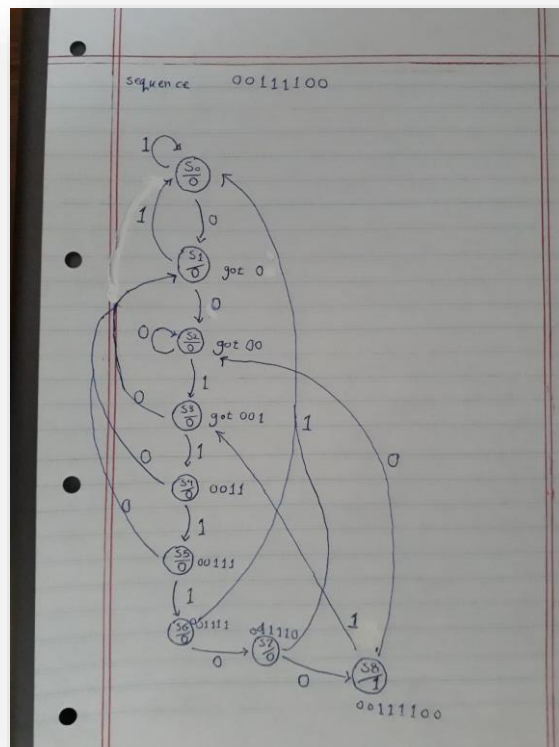 sequence 00111100
1
S0
0
1 0
S1
0 got 0
0
0 S2
0 got 00
1
0 S3
0 got 001
1 1
0
0 S4
0 0011
0 1
S5
0 00111
1
S6
0 001111
0
S7
0 011110
0
1
S8
1
00111100